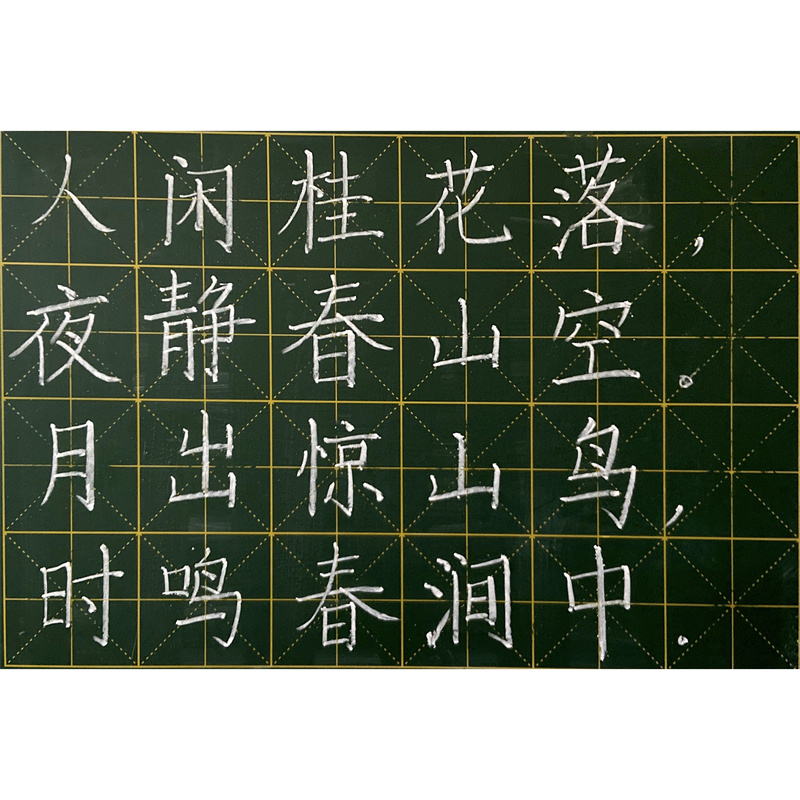 人闲桂花落，
夜静春山空。
月出惊山鸟，
时鸣春涧中.